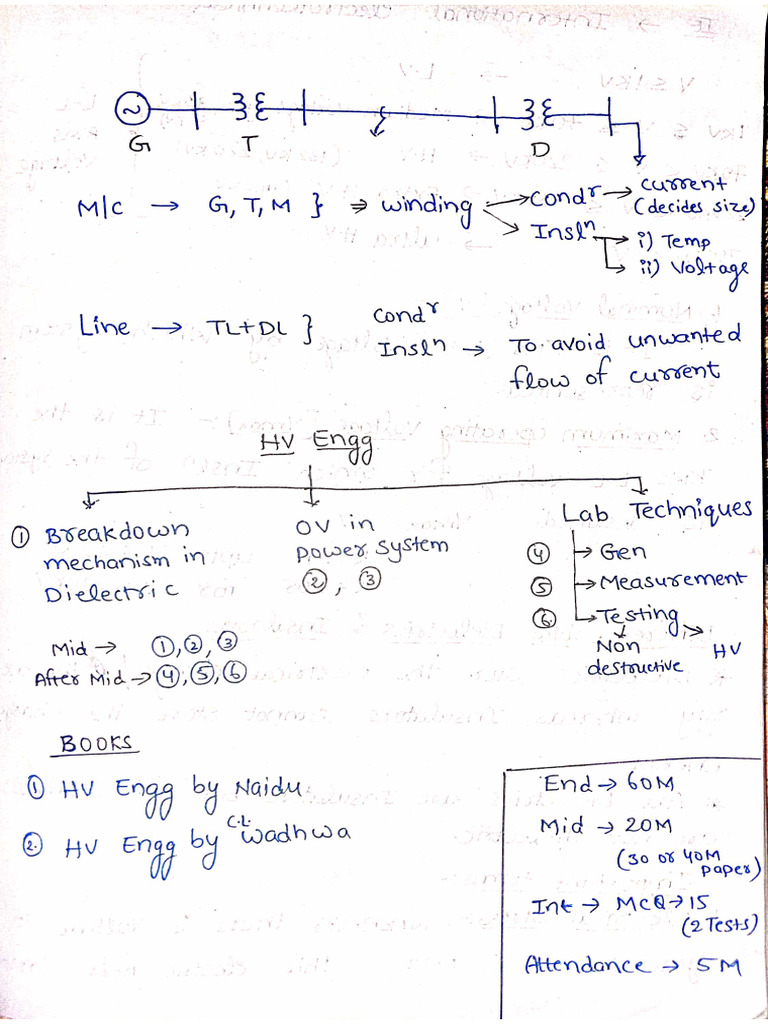 G T D
M/c → G, T, M } ⇒ winding → Condʳ → current
(decides size)
Inslⁿ → i) Temp
ii) Voltage
Line → TL+DL } Condʳ
Inslⁿ → To avoid unwanted
flow of current
HV Engg
① Breakdown
mechanism in
Dielectric
OV in
Power system
②, ③
Lab Techniques
④ → Gen
⑤ → Measurement
⑥ → Testing
Non
destructive
HV
Mid → ①, ②, ③
After Mid → ④, ⑤, ⑥
BOOKS
① HV Engg by Naidu
②. HV Engg by C.L. Wadhwa
End → 60M
Mid → 20M
(30 or 40M
paper)
Int → MCQ → 15
(2 Tests)
Attendance → 5M